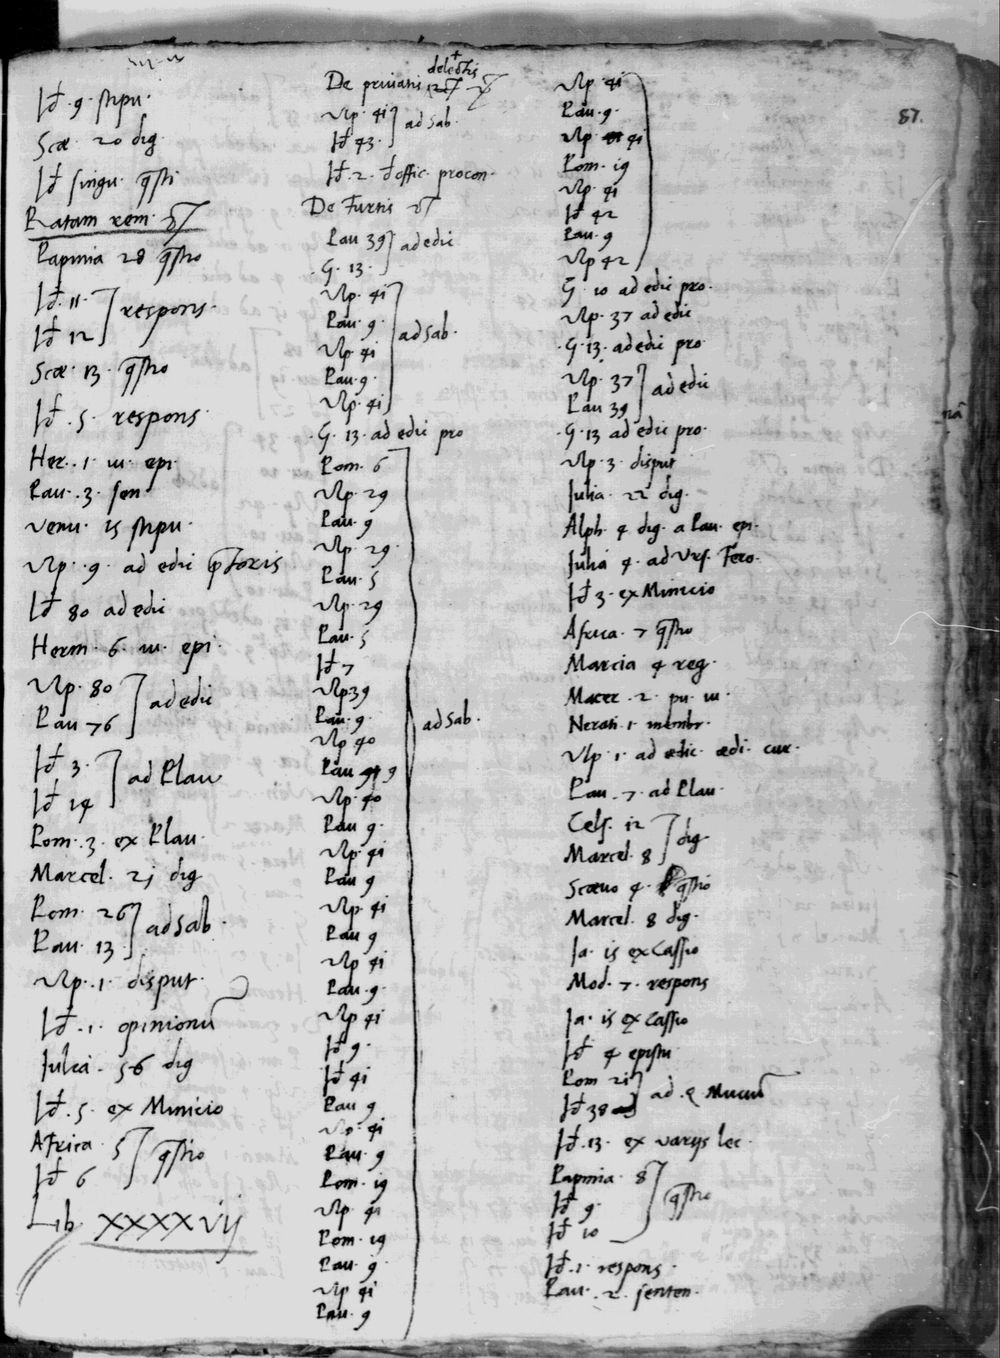 87.
Id. 9. stipu.
Scæ. 20 dig.
Id singu. qsti
Ratam rem.
Papinia 28 qstio
Id. 11. respons.
Id 12
Scæ. 13. qstio
Id. 5. respons.
Her. 1. iu. epi.
Pau. 3. sen
Venu. is stipu.
Vlp. 9. ad edii ptoris
Id 80 ad edii
Herm. 6. iu. epi.
Vlp. 80 ad edii
Pau 76
Id 3. ad Plau
Id 14
Pom. 3. ex Plau.
Marcel. 21 dig
Pom. 26 ad Sab.
Pau. 13
Vlp. 1. disput.
Id. 1. opinionū
Julia. 56 dig
Id. 5. ex Minicio
Africa 5 qstio
Id 6
Lib XXXXVIJ
De priuatis delectis
Vlp. 41 ad Sab.
Id 43.
Id. 2. d offic. procon.
De Furtis
Pau 39 ad edii
G. 13.
Vlp. 41
Pau. 9.
Vlp. 41 ad Sab.
Pau. 9.
Vlp. 41
G. 13. ad edii pro
Pom. 6
Vlp. 29
Pau. 9
Vlp. 29.
Pau. 5
Vlp. 29
Pau. 5
Id 7
Vlp 39
Pau. 9. ad Sab.
Vlp 40
Pau 9
Vlp. 40
Pau 9.
Vlp. 41
Pau 9
Vlp. 41
Pau 9
Vlp 41
Pau. 9.
Vlp 41
Id 9.
Id 41
Pau 9
Vlp. 41
Pau. 9
Pom. 19
Vlp. 41
Pom. 19
Pau. 9.
Vlp 41
Pau. 9
Vlp. 41
Pau. 9.
Vlp 41
Pom. 19
Vlp. 41
Id 42
Pau. 9
Vlp 42
G. 10 ad edii pro.
Vlp. 37 ad edii
G. 13. ad edii pro.
Vlp. 37 ad edii
Pau 39
G. 13 ad edii pro.
Vlp. 3. disput
Julia. 22 dig.
Alph. 4 dig. a Pau. epi.
Julia 4. ad Vrs. Fero.
Id 3. ex Minicio
Africa. 7 qstio
Marcia 4 reg.
Macer. 2. pu. iu.
Nerati. 1. membr.
Vlp. 1. ad edic. ædi. cur.
Pau. 7. ad Plau.
Cels. 12 dig.
Marcel. 8
Scæuo 4. qstio
Marcel. 8 dig.
Ja. is ex Cassio
Mod. 7. respons
Ja. is ex Cassio
Id 4 epistu
Pom 21 ad. Q. Mucū
Id 38
Id. 13. ex varijs lec.
Papinia. 8 qstio
Id 9.
Id 10
Id. 1. respons.
Pau. 2. senten.